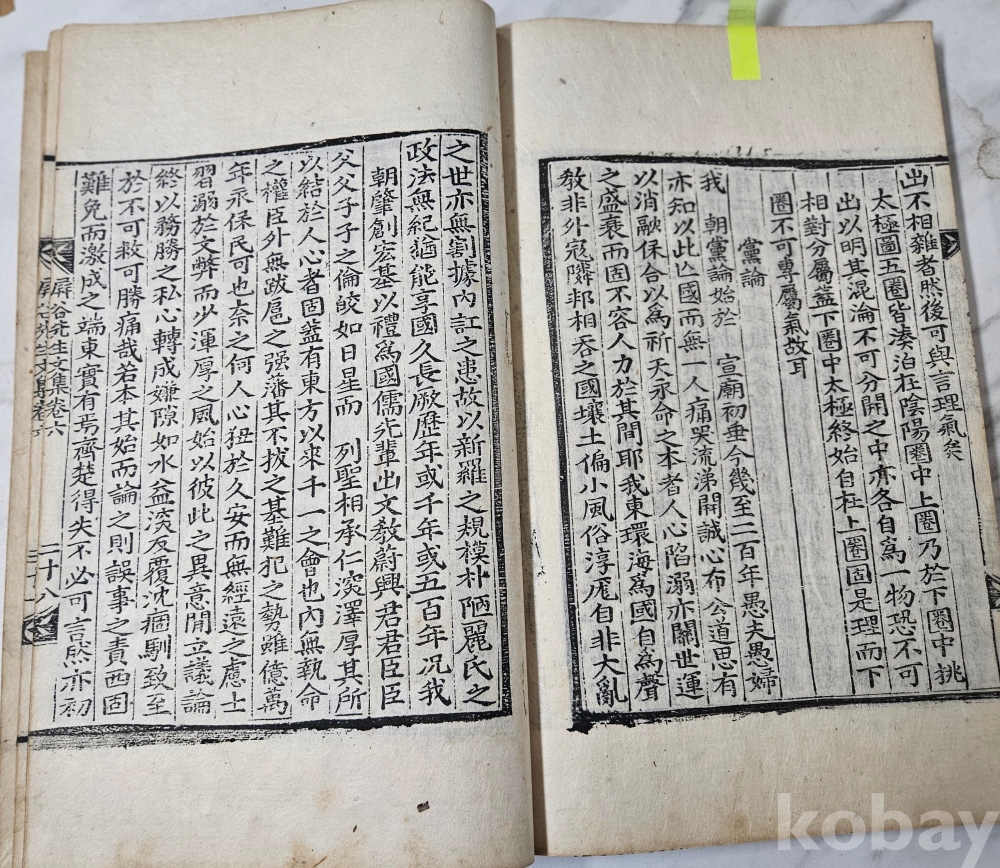 出不相雜者然後可與言理氣矣
太極圖五圈皆湊泊在陰陽圈中上圈乃於下圈中挑
出以明其混淪不可分開之中亦各自爲一物恐不可
相對分屬蓋下圈中太極終始自在上圈固是理而下
圈不可專屬氣故耳
黨論
我 朝黨論始於 宣廟初垂今幾至二百年愚夫愚婦
亦知以此亾國而無一人痛哭流涕開誠心布公道思有
以消融保合以爲祈天永命之本者人心陷溺亦關世運
之盛衰而固不容人力於其間耶我東環海爲國自爲聲
敎非外寇隣邦相呑之國壤土偏小風俗淳厖自非大亂
之世亦無割據內訌之患故以新羅之規模朴陋麗氏之
政法無紀猶能享國久長厥歷年或千年或五百年况我
朝肇創宏基以禮爲國儒先輩出文敎蔚興君君臣臣
父父子子之倫皎如日星而 列聖相承仁深澤厚其所
以結於人心者固蓋有東方以來千一之會也內無執命
之權臣外無跋扈之强藩其不拔之基難犯之勢雖億萬
年永保民可也奈之何人心狃於久安而無經遠之慮士
習溺於文弊而少渾厚之風始以彼此之異意閒立議論
終以務勝之私心轉成嫌隙如水益深反覆沈痼馴致至
於不可救可勝痛哉若本其始而論之則誤事之責西固
難免而激成之端東實有焉齊楚得失不必可言然亦初
屛谷先生文集卷六
二十八
kobay